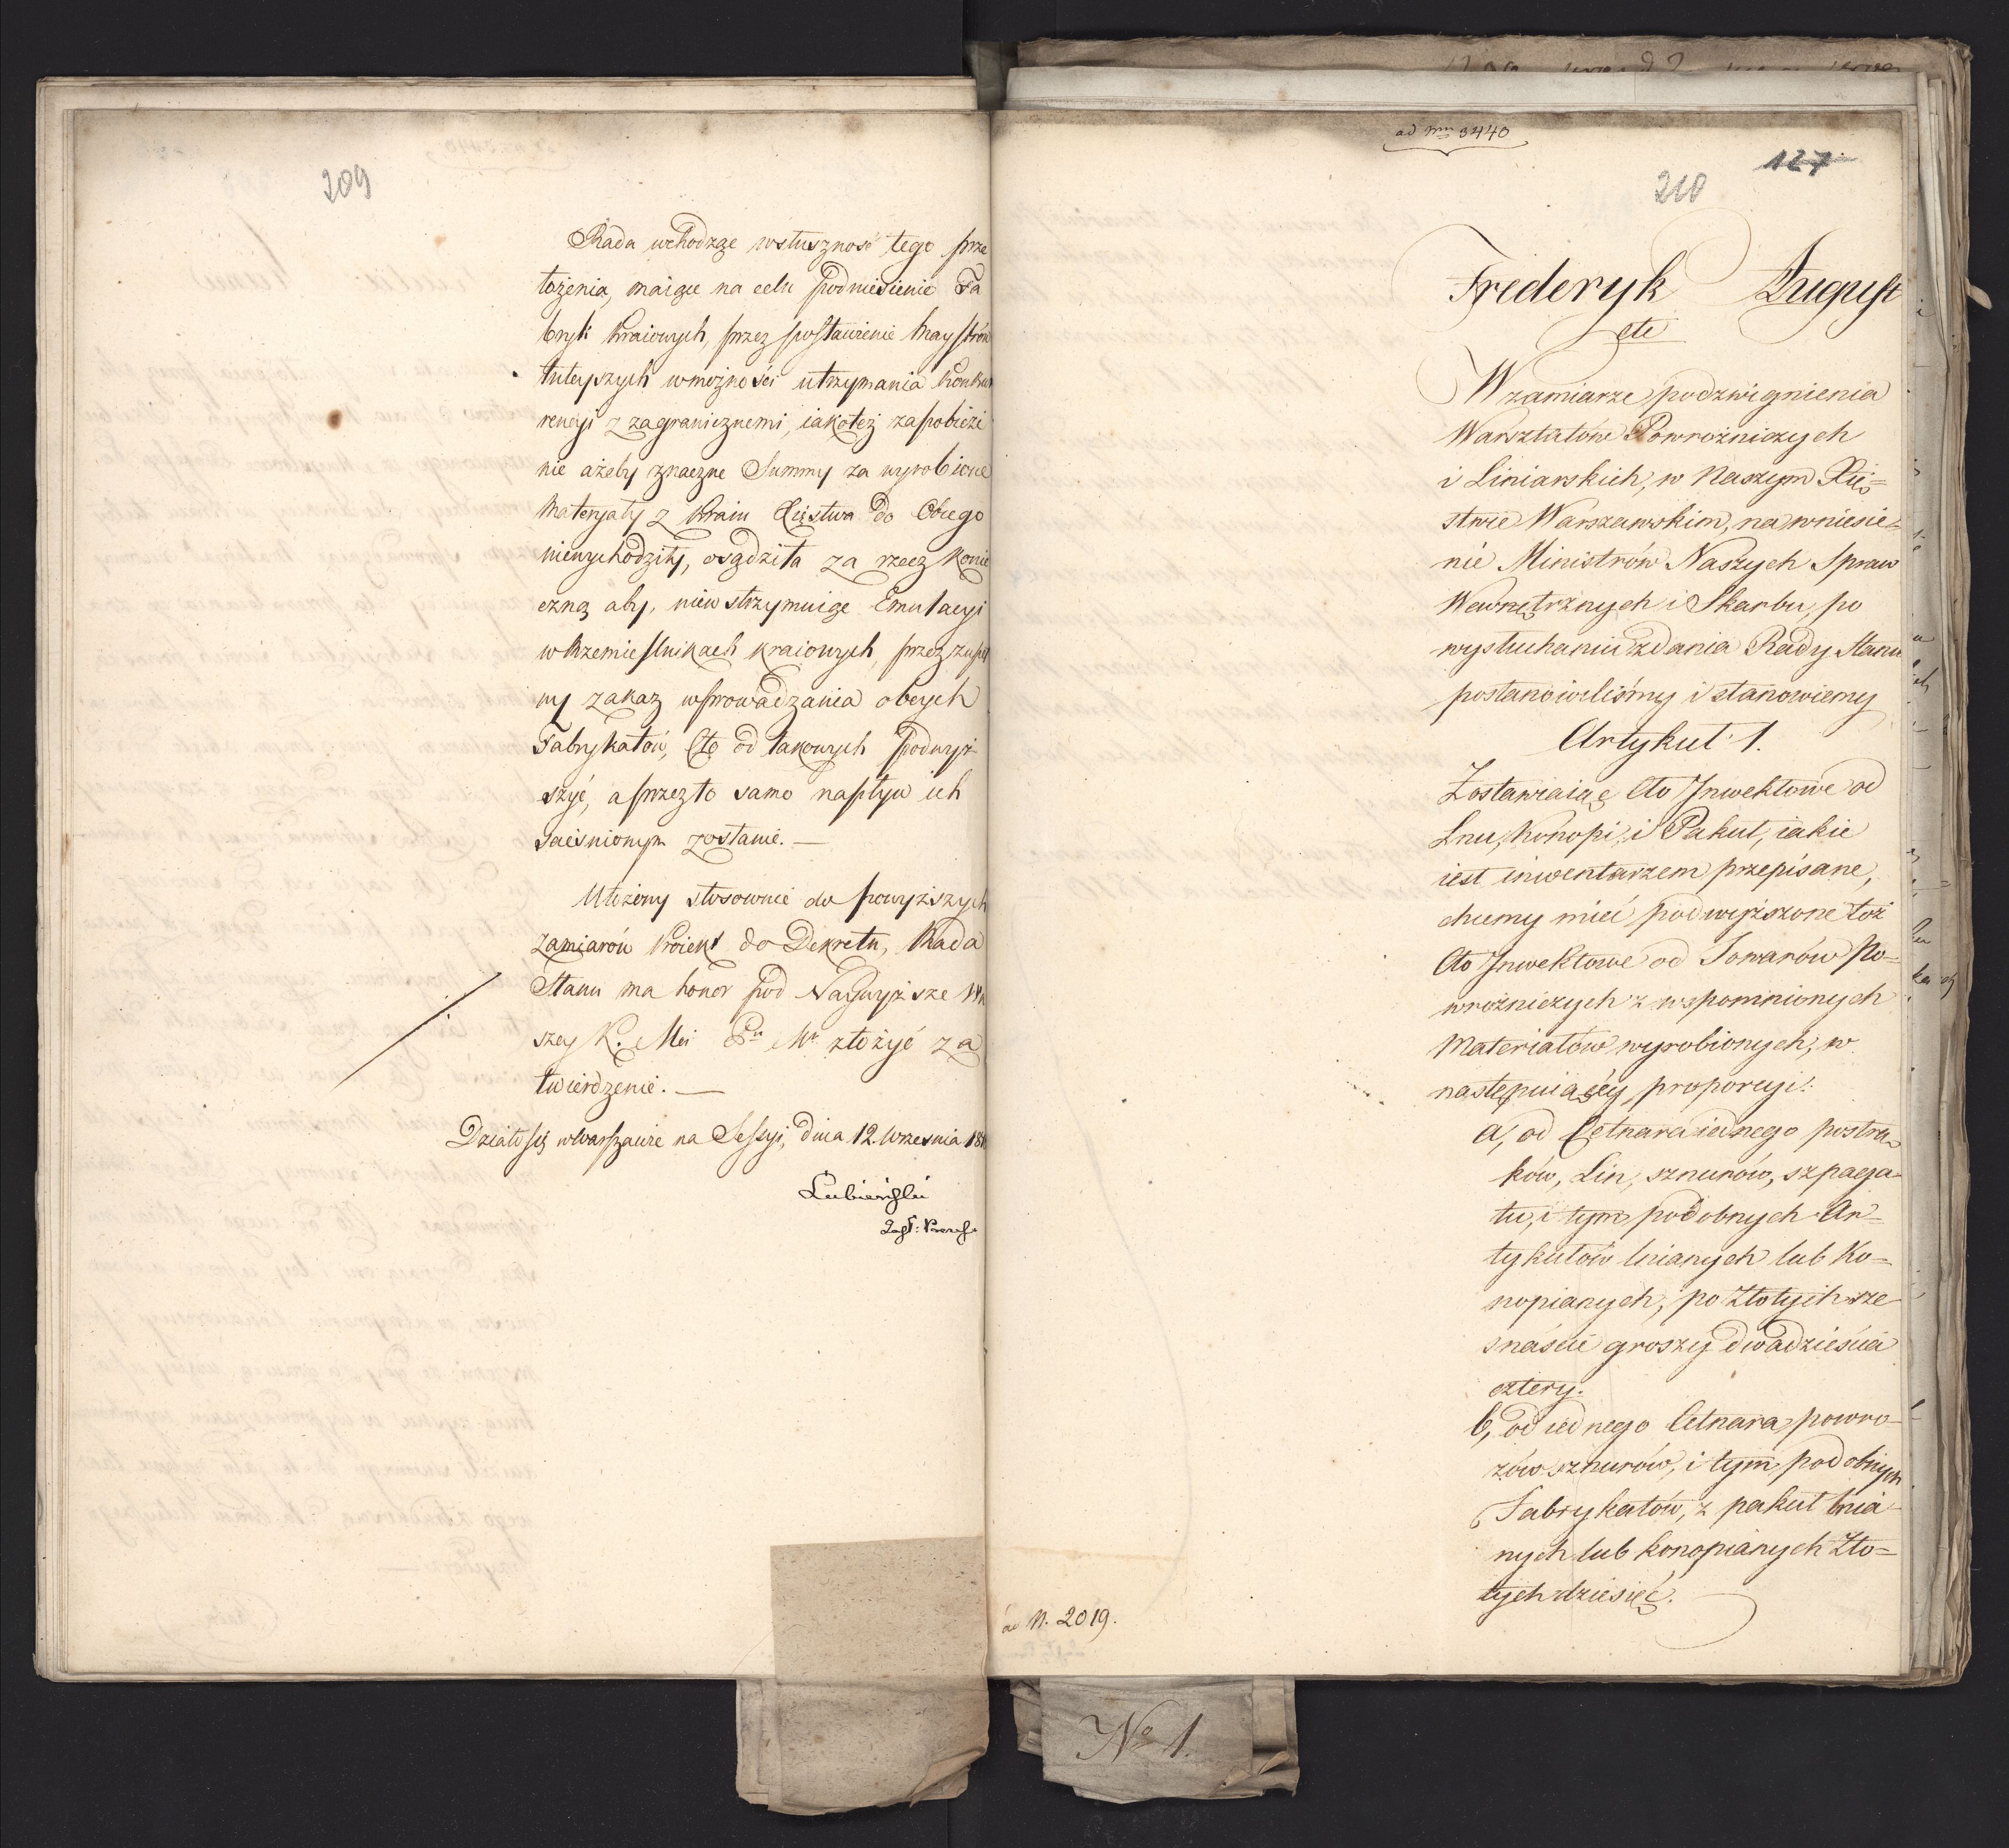 209
Rada wchodząc w słuszność tego prze
łożenia, maiąc na celu podniesienie Fa
bryk kraiowych, przez postawienie Maystrów
tuteyszych w możności utrzymania konku
rencyi z zagranicznemi, iakoteż zapobieże
nie ażeby znaczne Summy za wyrobione
Materyały z Kraiu Xięstwa do Obcego
niewychodziły, osądziła za rzecz konie
czną aby, niewstrzymuiąc Emulacyi
w Rzemieślnikach kraiowych, przez zupeł
ny zakaz wprowadzania obcych
Fabrykatów, Cło od takowych podwyż
szyć, a przez to samo napływ ich
ścieśnionym zostanie. —
Ułożony stosownie do powyższych
zamiarów Proiekt do Dekretu, Rada
Stanu ma honor pod Naywyższe W
szey K. Mci P M złożyć za
twierdzenie. —
Działo się w Warszawie na Sessyi, dnia 12. Września 181
Lubieński
ad Nrm 3440
127
210
Frederyk August
etc
W zamiarze podzwignienia
Warsztatów Powroźniczych
i Liniarskich, w Naszym Xię=
stwie Warszawskim, na wniesie=
nie Ministrów Naszych Spraw
Wewnętrznych i Skarbu, po
wysłuchaniu zdania Rady Stanu
postanowiliśmy i stanowiemy
Artykuł 1.
Zostawiaiąc Cło Inwektowe od
Lnu, Konopi, i Pakuł, iakie
iest inwentarzem przepisane,
chcemy mieć podwyższone toż
Cło Inwektowe od Towarów Po=
wroźniczych z wspomnionych
Materiałów wyrobionych, w
następuiącey proporcyi:
a, od Cetnara iednego postron
ków, Lin, sznurów, szpaga
tu, i tym podobnych Ar=
tykułów lnianych lub Ko=
nopianych, po Złotych sze
snaście groszy dwadzieścia
cztery.
b, od iednego Cetnara powro=
zów sznurów, i tym podobnych
Fabrykatów, z pakuł lnia=
nych lub konopianych Zło=
tych dziesięć.
ad N. 2019.
No 1.